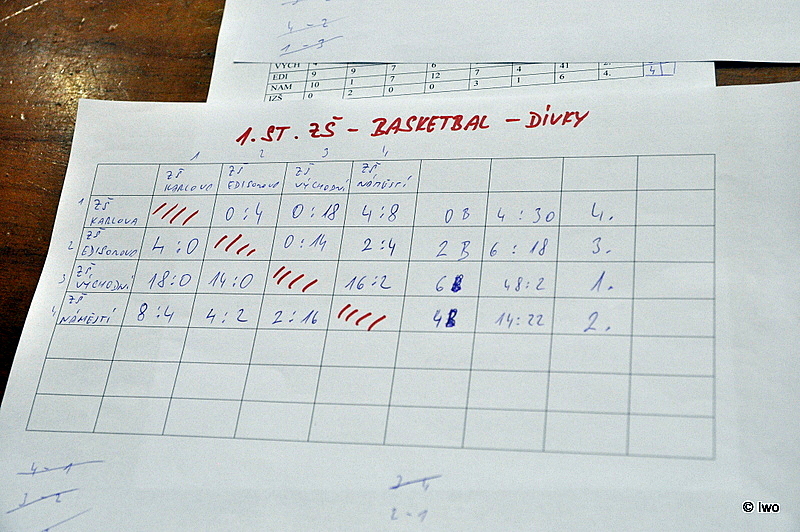 4 - 2
1 - 3
VÝCH 9 9 7 6 7 4 41
EDI 9 1 7 12 4 1 6 4. 4
NAM 10 2 0 0 3
IZŠ 0
1. ST. ZŠ - BASKETBAL - DÍVKY
1 2 3 4
ZŠ KARLOVA ZŠ EDISONOVA ZŠ VÝCHODNÍ ZŠ NÁMĚSTÍ
1 ZŠ KARLOVA 0:4 0:18 4:8 0B 4:30 4.
2 ZŠ EDISONOVA 4:0 0:14 2:4 2B 6:18 3.
3 ZŠ VÝCHODNÍ 18:0 14:0 16:2 6B 48:2 1.
4 ZŠ NÁMĚSTÍ 8:4 4:2 2:16 4B 14:22 2.
4 - 1
3 - 2
3 - 4
2 - 1
© Iwo